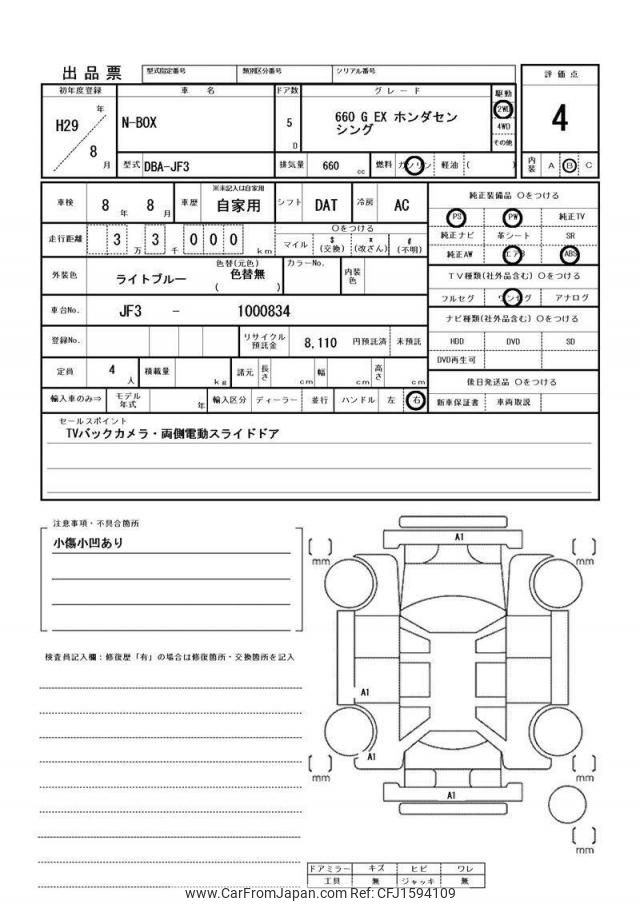 出品票 型式指定番号 類別区分番号 シリアル番号 評価点
初年度登録 車名 ドア数 グレード 駆動
H29 年 N-BOX 5 660 G EX ホンダセン 2WD 4
シング 4WD
8 月 D その他
型式 DBA-JF3 排気量 660 cc 燃料 ガソリン 軽油 ( ) 内装 A B C
車検 8 年 8 月 車歴 ※未記入は自家用 自家用 シフト DAT 冷房 AC 純正装備品 〇をつける
PS PW 純正TV
走行距離 3 万 3 千 0 0 0 km 〇をつける
マイル $ (交換) x (改ざん) # (不明) 純正ナビ 革シート SR
純正AW エアB ABS
外装色 ライトブルー 色替(元色) 色替無 ( ) カラーNo. 内装色 TV種類(社外品含む) 〇をつける
フルセグ ワンセグ アナログ
車台No. JF3 - 1000834 ナビ種類(社外品含む) 〇をつける
登録No. リサイクル預託金 8,110 円預託済 未預託 HDD DVD SD
DVD再生可
定員 4 人 積載量 kg 諸元 長さ cm 幅 cm 高さ cm 後日発送品 〇をつける
輸入車のみ⇒ モデル年式 年 輸入区分 ディーラー 並行 ハンドル 左 右 新車保証書 車両取説
セールスポイント
TVバックカメラ・両側電動スライドドア
注意事項・不具合箇所
小傷小凹あり
検査員記入欄:修復歴「有」の場合は修復箇所・交換箇所を記入
A1
[ ] mm [ ] mm
A1
A1
[ ] mm [ ] mm
A1
[ ] mm
ドアミラー キズ ヒビ ワレ
工具 無 ジャッキ 無
www.CarFromJapan.com Ref: CFJ1594109